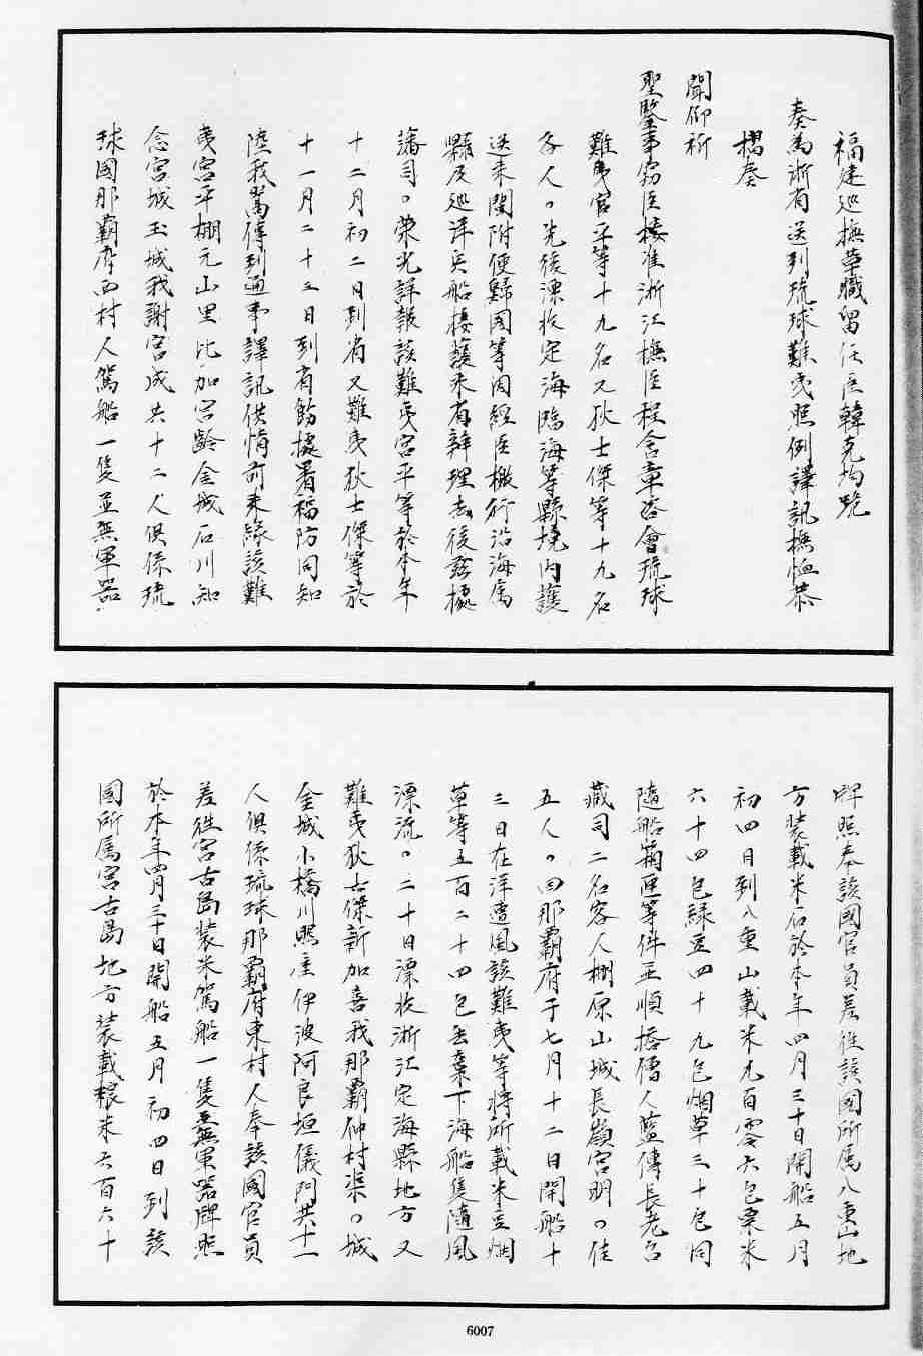 福建巡撫革職留任臣韓克均跪
奏為浙省送到琉球難夷照例譯訊撫恤恭
摺奏
聞仰祈
聖鑒事竊臣接准浙江撫臣程含章咨會琉球
難夷宮平等十九名又狄士傑等十九名
各人〇先後漂收定海臨海等縣境內護
送來閩附便歸國等因經臣檄行沿海属
縣及巡洋兵船接護來省辦理去後兹據
藩司〇榮光詳報該難夷宮平等於本年
十二月初二日到省又難夷狄士傑等於
十一月二十三日到省飭據署福防同知
陸我嵩傳到通事譯訊供情前來緣該難
夷宮平棚元山里比加宮齡金城石川知
念宮城玉城我謝宮成共十二人俱係琉
球國那霸府西村人駕船一隻並無軍器
牌照奉該國官員差徃該國所属八重山地
方裝載米石於本年四月三十日開船五月
初四日到八重山載米九百零六包粟米
六十四包緑豆四十九包烟草三十包同
隨船箱匣等件並順搭僧人藍傳長老名
藏司二名客人棚原山城長嶺宮明〇佳
五人〇回那霸府于七月十二日開船十
三日在洋遭風該難夷等將所載米豆烟
草等五百二十四包丟棄下海船隻隨風
漂流〇二十日漂收浙江定海縣地方又
難夷狄士傑新加喜我那霸仲村渠〇城
金城小橋川照屋伊波阿良垣儀門共十一
人俱係琉球那霸府東村人奉該國官員
差徃宮古島裝米駕船一隻並無軍器牌照
於本年四月三十日開船五月初四日到該
國所属宮古島地方裝載粮米六百六十
6007